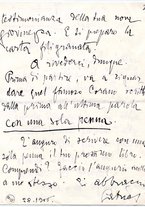 testimonianza della tua non
provincia. E ti preparo la
carta filigranata.
A rivederci, dunque.
Prima di partire, va a riguar
dare quel famoso Corano scritto
dalla prima all'ultima parola
con una sola penna.
T'auguro di scrivere con una
sola penna il tuo prossimo libro.
Comprendi? faccio l'augurio anche
a me stesso. Ti abbraccio
28.